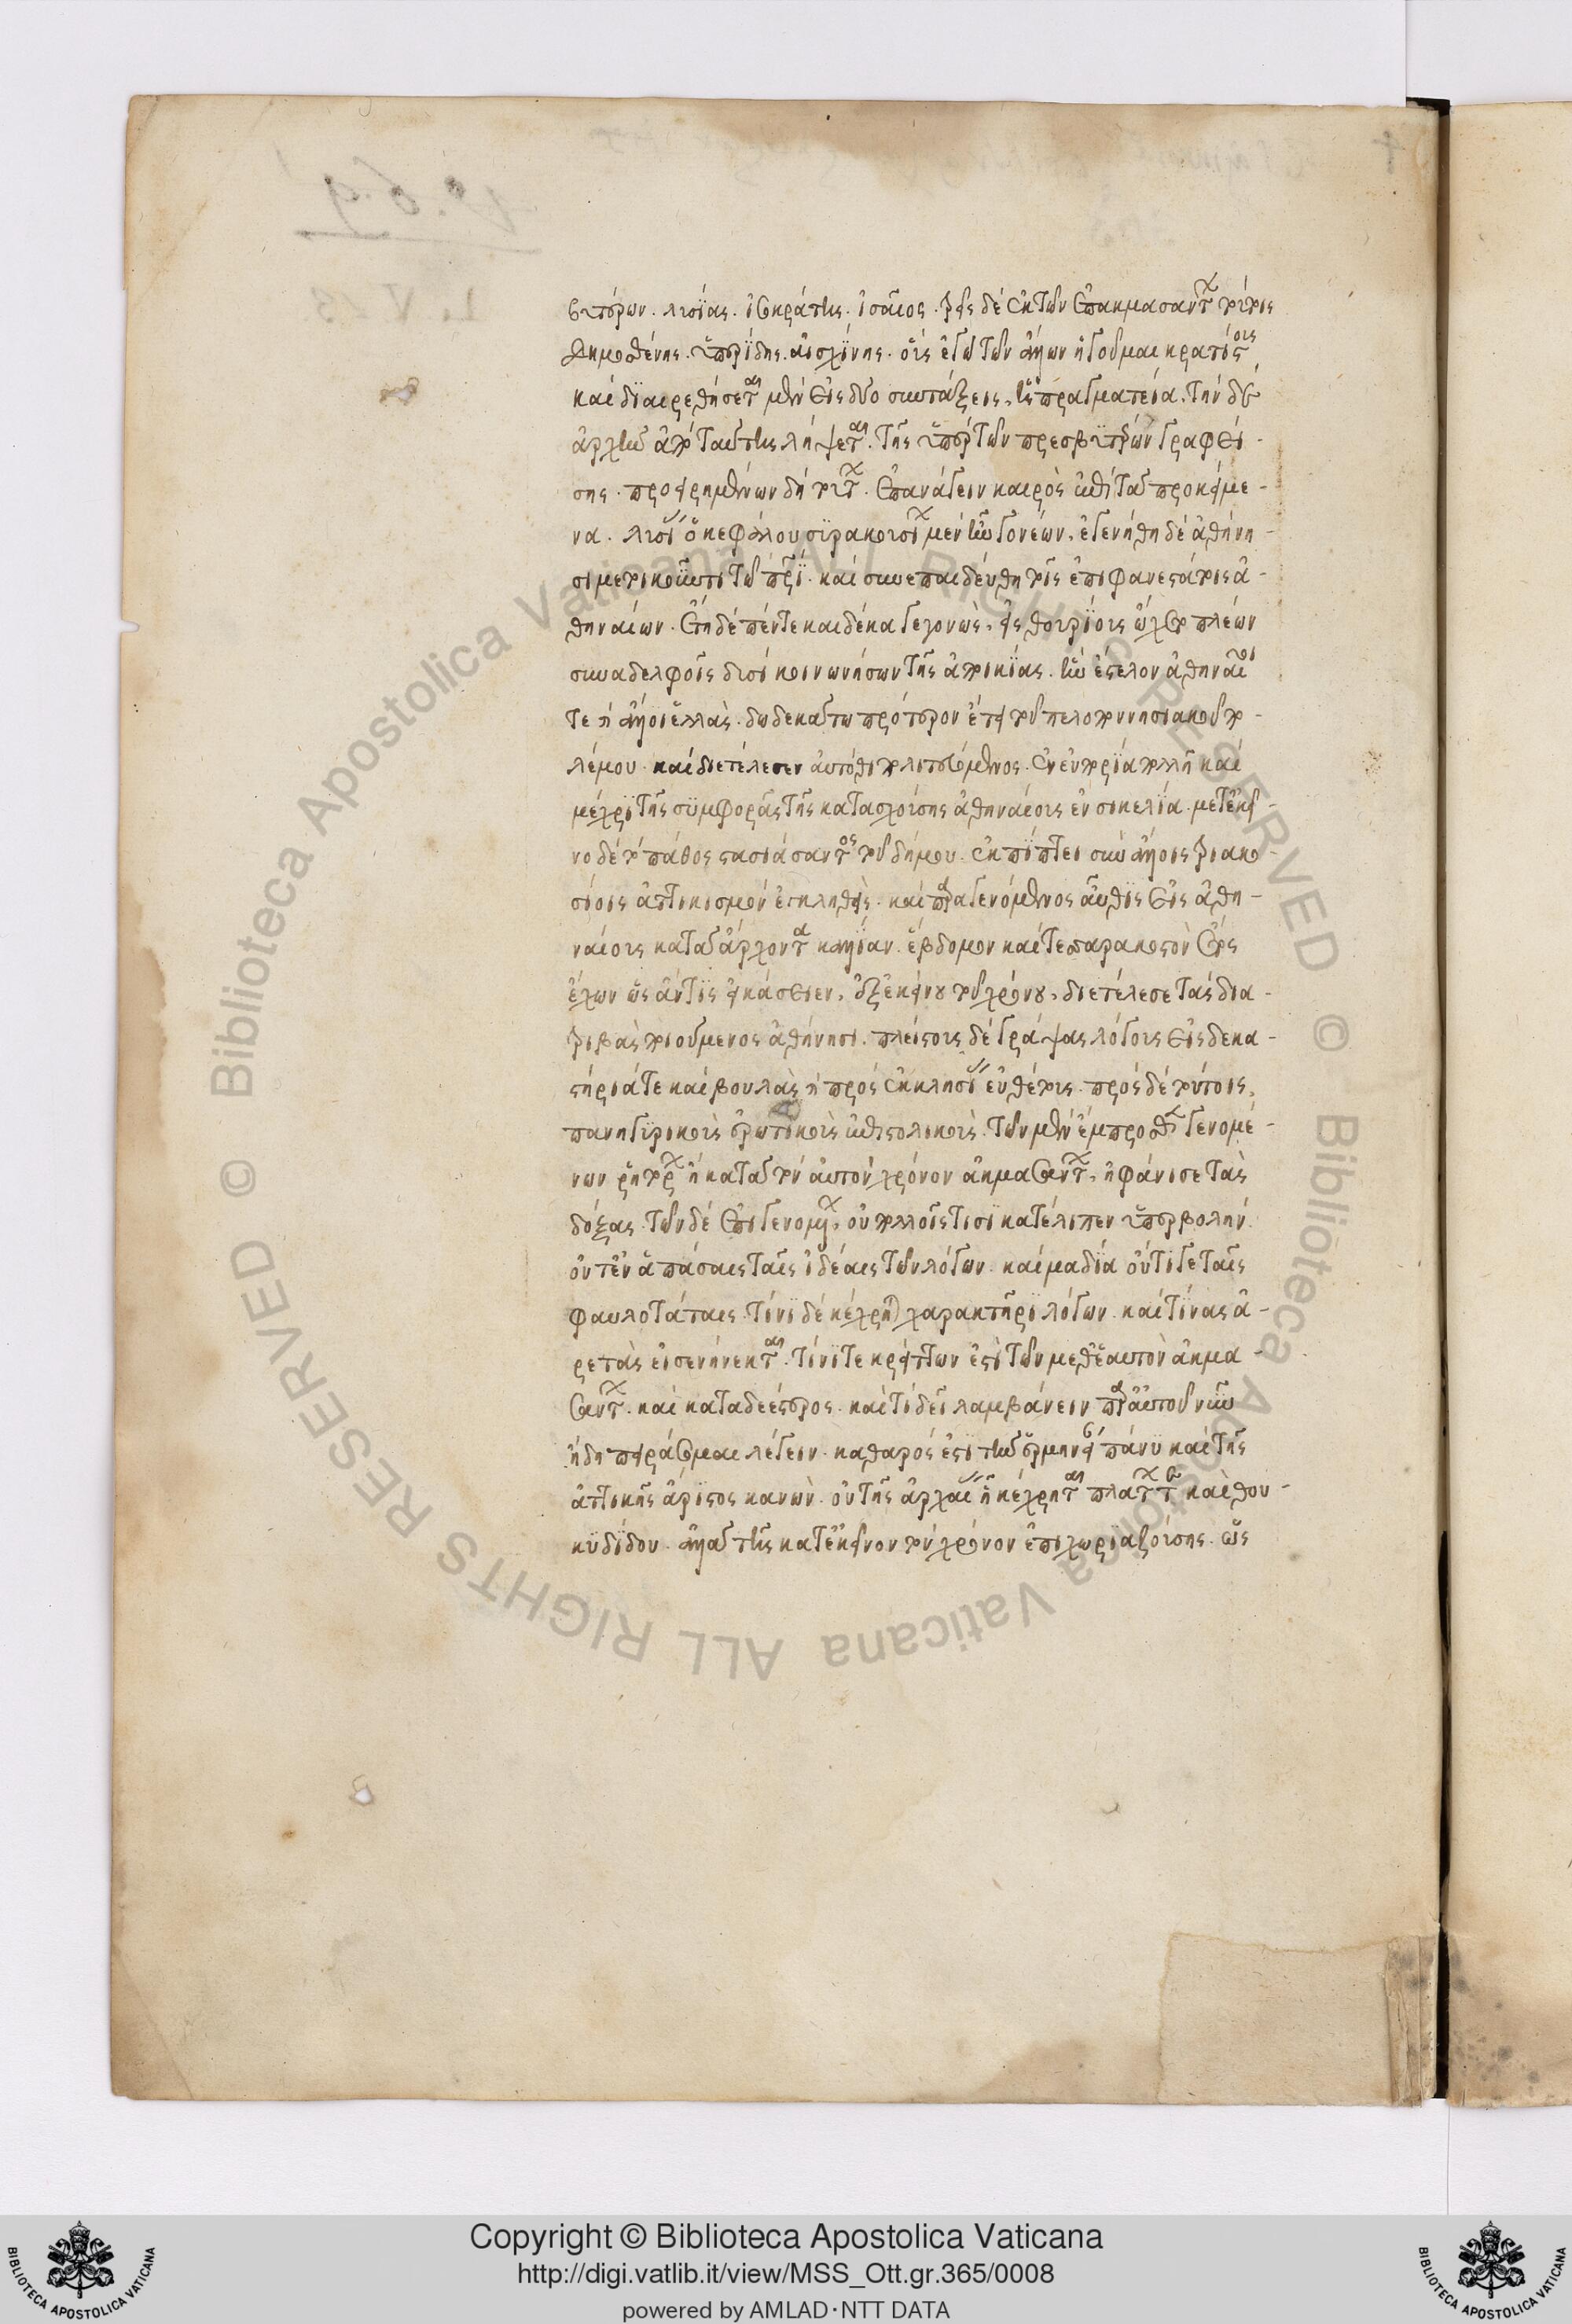 βυτέρων. λυσίας. ἰσοκράτης. ἰσαῖος. τρεῖς δὲ ἐκ τῶν ἐπακμασάντων τούτοις
δημοσθένης. ὑπερίδης. αἰσχίνης. οὓς ἐγὼ τῶν ἄλλων ἡγοῦμαι κρατίστους
καὶ διαιρεθήσεται μὲν εἰς δύο συντάξεις, ἡ πραγματεία. τὴν δὲ
ἀρχὴν ἀπὸ ταύτης λήψεται. τῆς ὑπὲρ τῶν πρεσβυτέρων γραφεί-
σης. προειρημένων δὴ τούτων. ἐπανάγειν καιρὸς ἐπὶ τὰ προκείμε-
να. λυσίας ὁ κεφάλου συρακουσίων μὲν ἦν γονέων, ἐγενήθη δὲ ἀθήνη-
σι μετοικοῦντι τῷ πατρί. καὶ συνεπαιδεύθη τοῖς ἐπιφανεστάτοις ἀ-
θηναίων. ἔτη δὲ πέντε καιδέκα γεγονὼς, εἰς θουρίους ᾤχετο πλέων
σὺν ἀδελφοῖς δυσὶ κοινωνήσων τῆς ἀποικίας. ἣν ἔστελον ἀθηναῖοί
τε καὶ ἡ ἄλλη ἑλλὰς. δωδεκάτω πρότερον ἔτει τοῦ πελοποννησιακοῦ πο-
λέμου. καὶ διετέλεσεν αὐτόθι πολιτευόμενος. ἐν εὐπορία πολλῆ καὶ
μέχρι τῆς συμφορᾶς τῆς κατασχούσης ἀθηναίους ἐν σικελία. μετ' ἐκεῖ-
νο δὲ τὸ πάθος στασιάσαντος τοῦ δήμου. ἐκπίπτει σὺν ἄλλοις τριακο-
σίοις ἀττικισμὸν ἐγκληθεὶς. καὶ παραγενόμενος αὖθις εἰς ἀθή-
ναους κατὰ ἄρχοντα καλλίαν. ἕβδομον καὶ τεσσαρακοστὸν ἔτος
ἔχων ὡς ἄν τις εἰκάσειεν, ἐξ ἐκείνου τοῦ χρόνου, διετέλεσε τὰς δια-
τριβὰς ποιούμενος ἀθήνησι. πλείστους δὲ γράψας λόγους εἰς δικα-
στήριά τε καὶ βουλὰς καὶ πρὸς ἐκκλησίας εὐθέτους. πρὸς δὲ τούτοις,
πανηγυρικοὺς ἐρωτικοὺς ἐπιστολικοὺς. τῶν μὲν ἔμπροσθεν γενομέ-
νων ῥητόρων ἢ κατὰ τὸν αὐτὸν χρόνον ἀκμασάντων, ἠφάνισε τὰς
δόξας. τῶν δὲ ἐπιγενομένων, οὐ πολλοῖς τισὶ κατέλιπεν ὑπερβολὴν.
οὔτ' ἐν ἁπάσαις ταῖς ἰδέαις τῶν λόγων. καὶ μὰ δία οὔτι γε ταῖς
φαυλοτάταις. τίνι δὲ κέχρηται χαρακτῆρι λόγων. καὶ τίνας ἀ-
ρετὰς εἰσενήνεκται. τίνι τε κρείττων ἐστὶ τῶν μεθ' ἑαυτὸν ἀκμα-
σάντων. καὶ καταδεέστερος. καὶ τί δεῖ λαμβάνειν παρ' αὐτοῦ νῦν
ἤδη πειράσομαι λέγειν. καθαρός ἐστι τὴν ἑρμηνείαν πάνυ καὶ τῆς
ἀττικῆς ἄριστος κανὼν. οὐ τῆς ἀρχαίας ἧ κέχρηται πλάτων τε καὶ θου-
κυδίδου. ἀλλὰ τῆς κατ' ἐκεῖνον τὸν χρόνον ἐπιχωριαζούσης. ὡς
© Biblioteca Apostolica Vaticana ALL RIGHTS RESERVED © Biblioteca Apostolica Vaticana ALL RIGHTS RESERVED
Copyright © Biblioteca Apostolica Vaticana
http://digi.vatlib.it/view/MSS_Ott.gr.365/0008
powered by AMLAD·NTT DATA
BIBLIOTECA APOSTOLICA VATICANA
BIBLIOTECA APOSTOLICA VATICANA